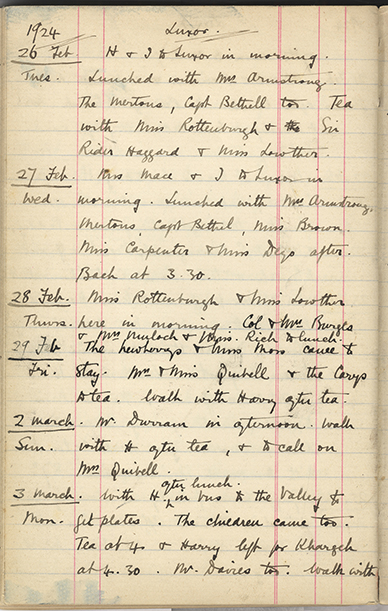 1924 Luxor.
26 Feb H & I to Luxor in morning.
Tues. Lunched with Mrs Armstrong.
The Mertons, Capt Bethell too. Tea
with Miss Rottenburgh & the Sir
Rider Haggard & Miss Lowther.
27 Feb. Miss Mace & I to Luxor in
Wed. morning. Lunched with Mrs Armstrong,
Mertons, Capt Bethel, Miss Brown
Miss Carpenter & Miss Deyo after.
Back at 3.30.
28 Feb. Miss Rottenburgh & Miss Lowther
Thurs. here in morning. Col & Mrs Burges
& Mrs Muloch & Miss Rich to lunch.
29 Feb The Newberrys & Miss Moss came to
Fri. stay. Mr & Miss Quibell & the Careys
to tea. Walk with Harry after tea.
2 March. Mr Durram in afternoon. Walk
Sun. with H after tea, & to call on
Mrs Quibell.
3 March. With H after lunch. in bus to the Valley to
Mon. get plates. The children came too.
Tea at 4 & Harry left for Khargeh
at 4.30. Mr Davies too. Walk with